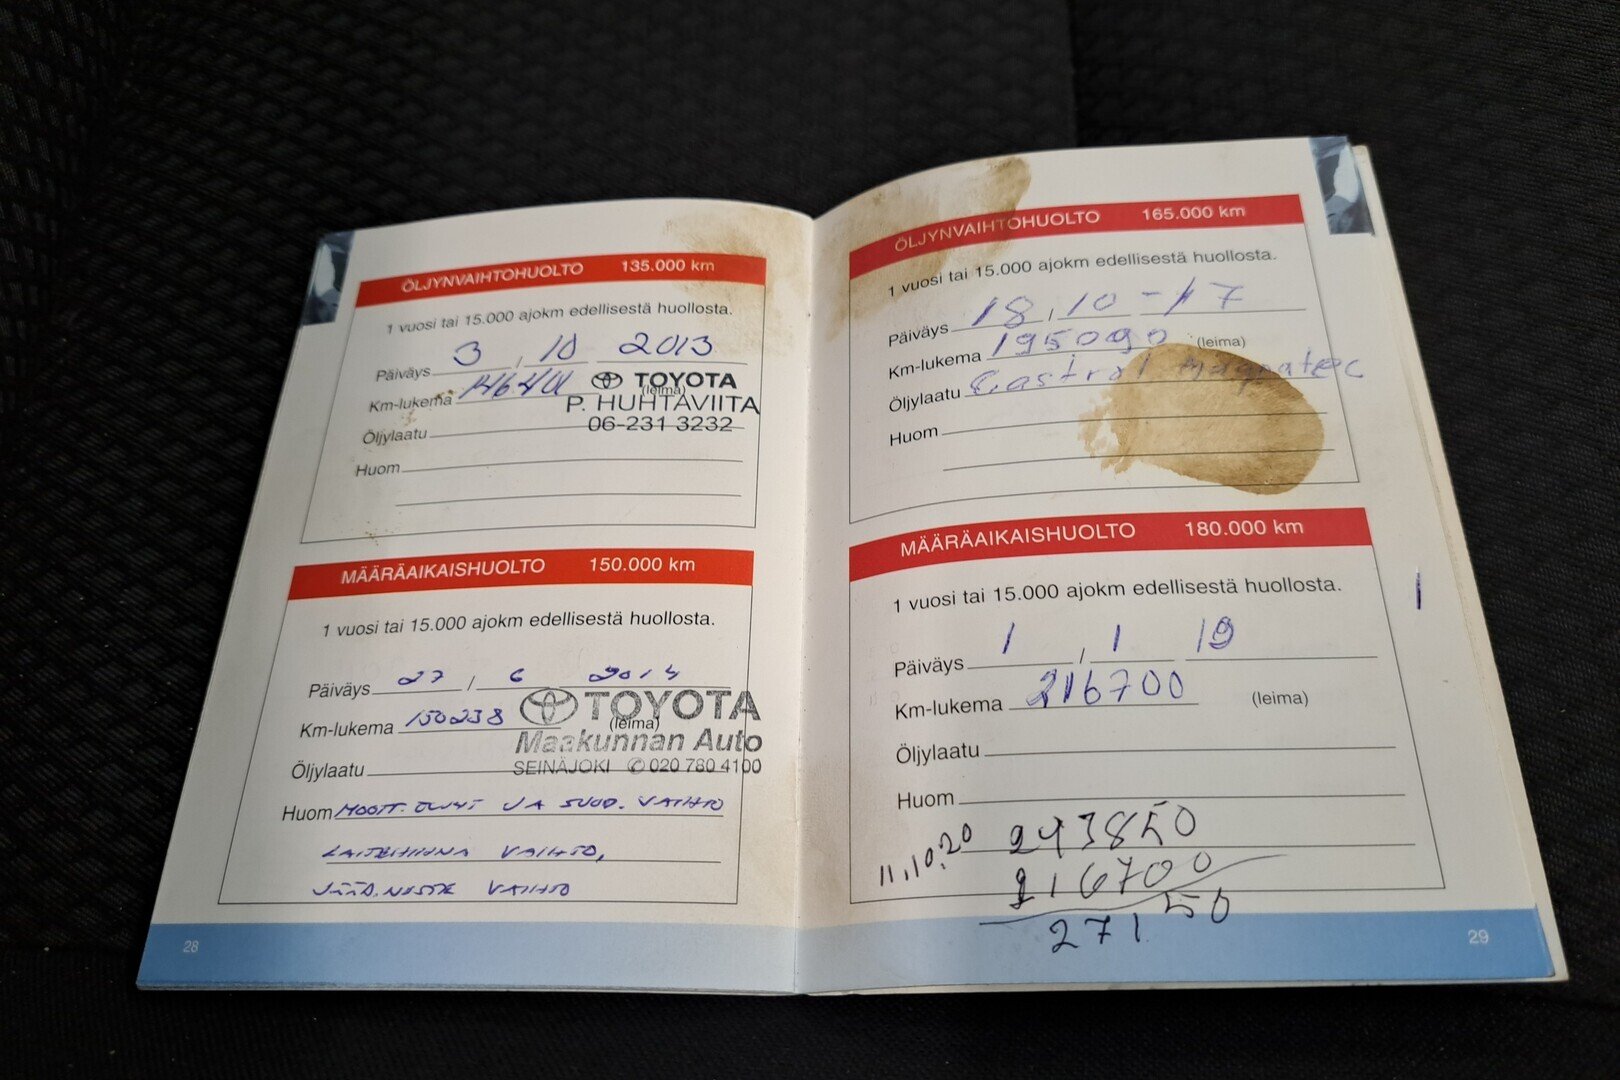 ÖLJYNVAIHTOHUOLTO 135.000 km
1 vuosi tai 15.000 ajokm edellisestä huollosta.
Päiväys 3 , 10 2013
Km-lukema (leima)
TOYOTA
P. HUHTAVIITA
06-231 3232
Öljylaatu
Huom
MÄÄRÄAIKAISHUOLTO 150.000 km
1 vuosi tai 15.000 ajokm edellisestä huollosta.
Päiväys 27 / 6 2014
Km-lukema 150238 (leima)
TOYOTA
Maakunnan Auto
SEINÄJOKI ✆ 020 780 4100
Öljylaatu
Huom MOOTT. ÖLJYT JA SUOD. VAIHTO
VAIHTO,
JÄÄD. NESTE VAIHTO
28
ÖLJYNVAIHTOHUOLTO 165.000 km
1 vuosi tai 15.000 ajokm edellisestä huollosta.
Päiväys 18 , 10 - 17
Km-lukema 195090 (leima)
Öljylaatu Castrol Magnatec
Huom
MÄÄRÄAIKAISHUOLTO 180.000 km
1 vuosi tai 15.000 ajokm edellisestä huollosta.
Päiväys 1 / 1 19
Km-lukema 216700 (leima)
Öljylaatu
Huom
11.10.20 243850
216700
27150
29